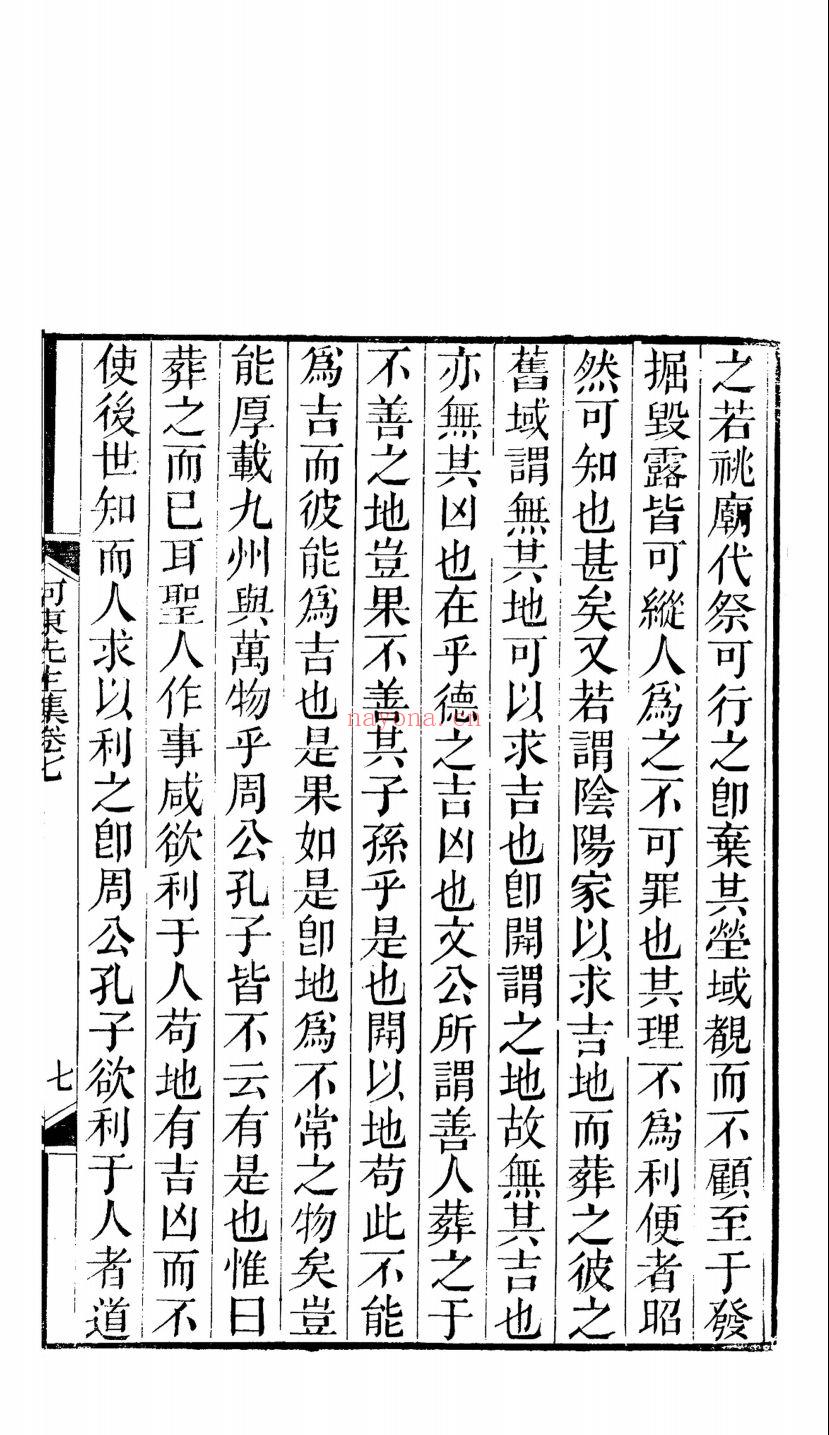 之若祧廟代祭可行之卽棄其塋域覩而不顧至于發
掘毀露皆可縱人爲之不可罪也其理不爲利便者昭
然可知也甚矣又若謂陰陽家以求吉地而葬之彼之
舊域謂無其地可以求吉也卽開謂之地故無其吉也
亦無其凶也在乎德之吉凶也文公所謂善人葬之于
不善之地豈果不善其子孫乎是也開以地苟此不能
爲吉而彼能爲吉也是果如是卽地爲不常之物矣豈
能厚載九州與萬物乎周公孔子皆不云有是也惟曰
葬之而已耳聖人作事咸欲利于人苟地有吉凶而不
使後世知而人求以利之卽周公孔子欲利于人者道
河東先生集卷七
七
nayona.cn